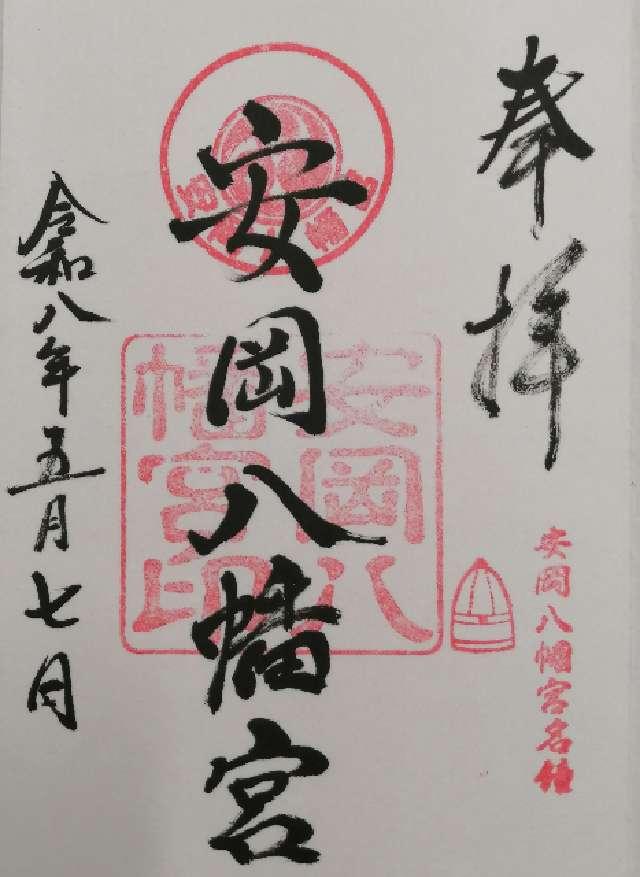 奉拝
安岡八幡宮名鐘
安岡八幡宮
安岡八
幡宮印
令和八年五月七日